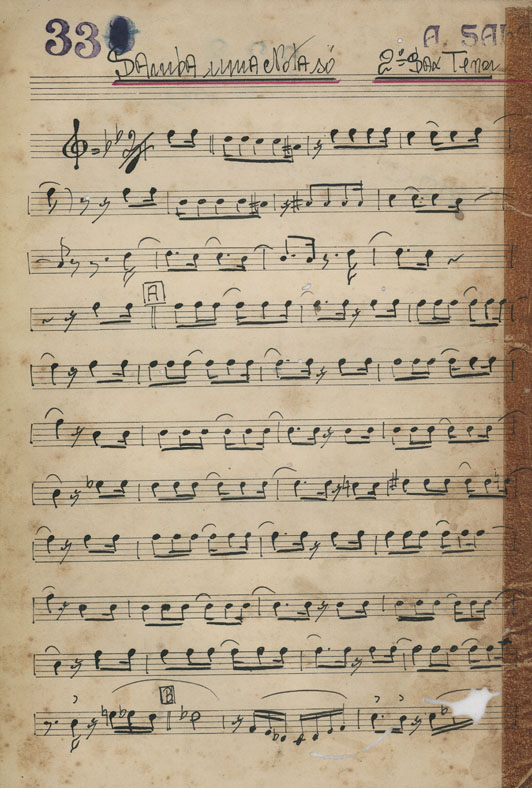 33 A. SA
Samba uma Nota só 2º Sax Tenor
A
B